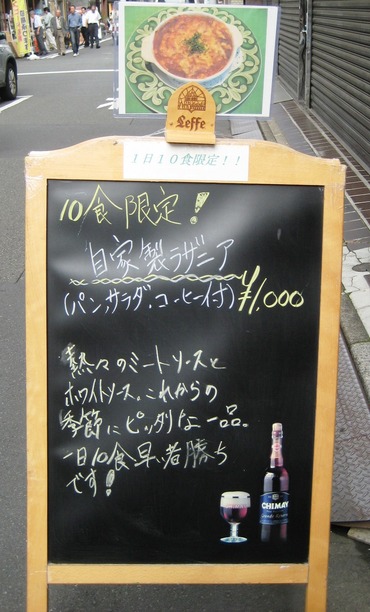 Leffe
1日10食限定!!
10食限定!
自家製ラザニア
(パン、サラダ、コーヒー付)¥1,000
熱々のミートソースと
ホワイトソース。これからの
季節にピッタリな一品。
一日10食早い者勝ち
です!
CHIMAY